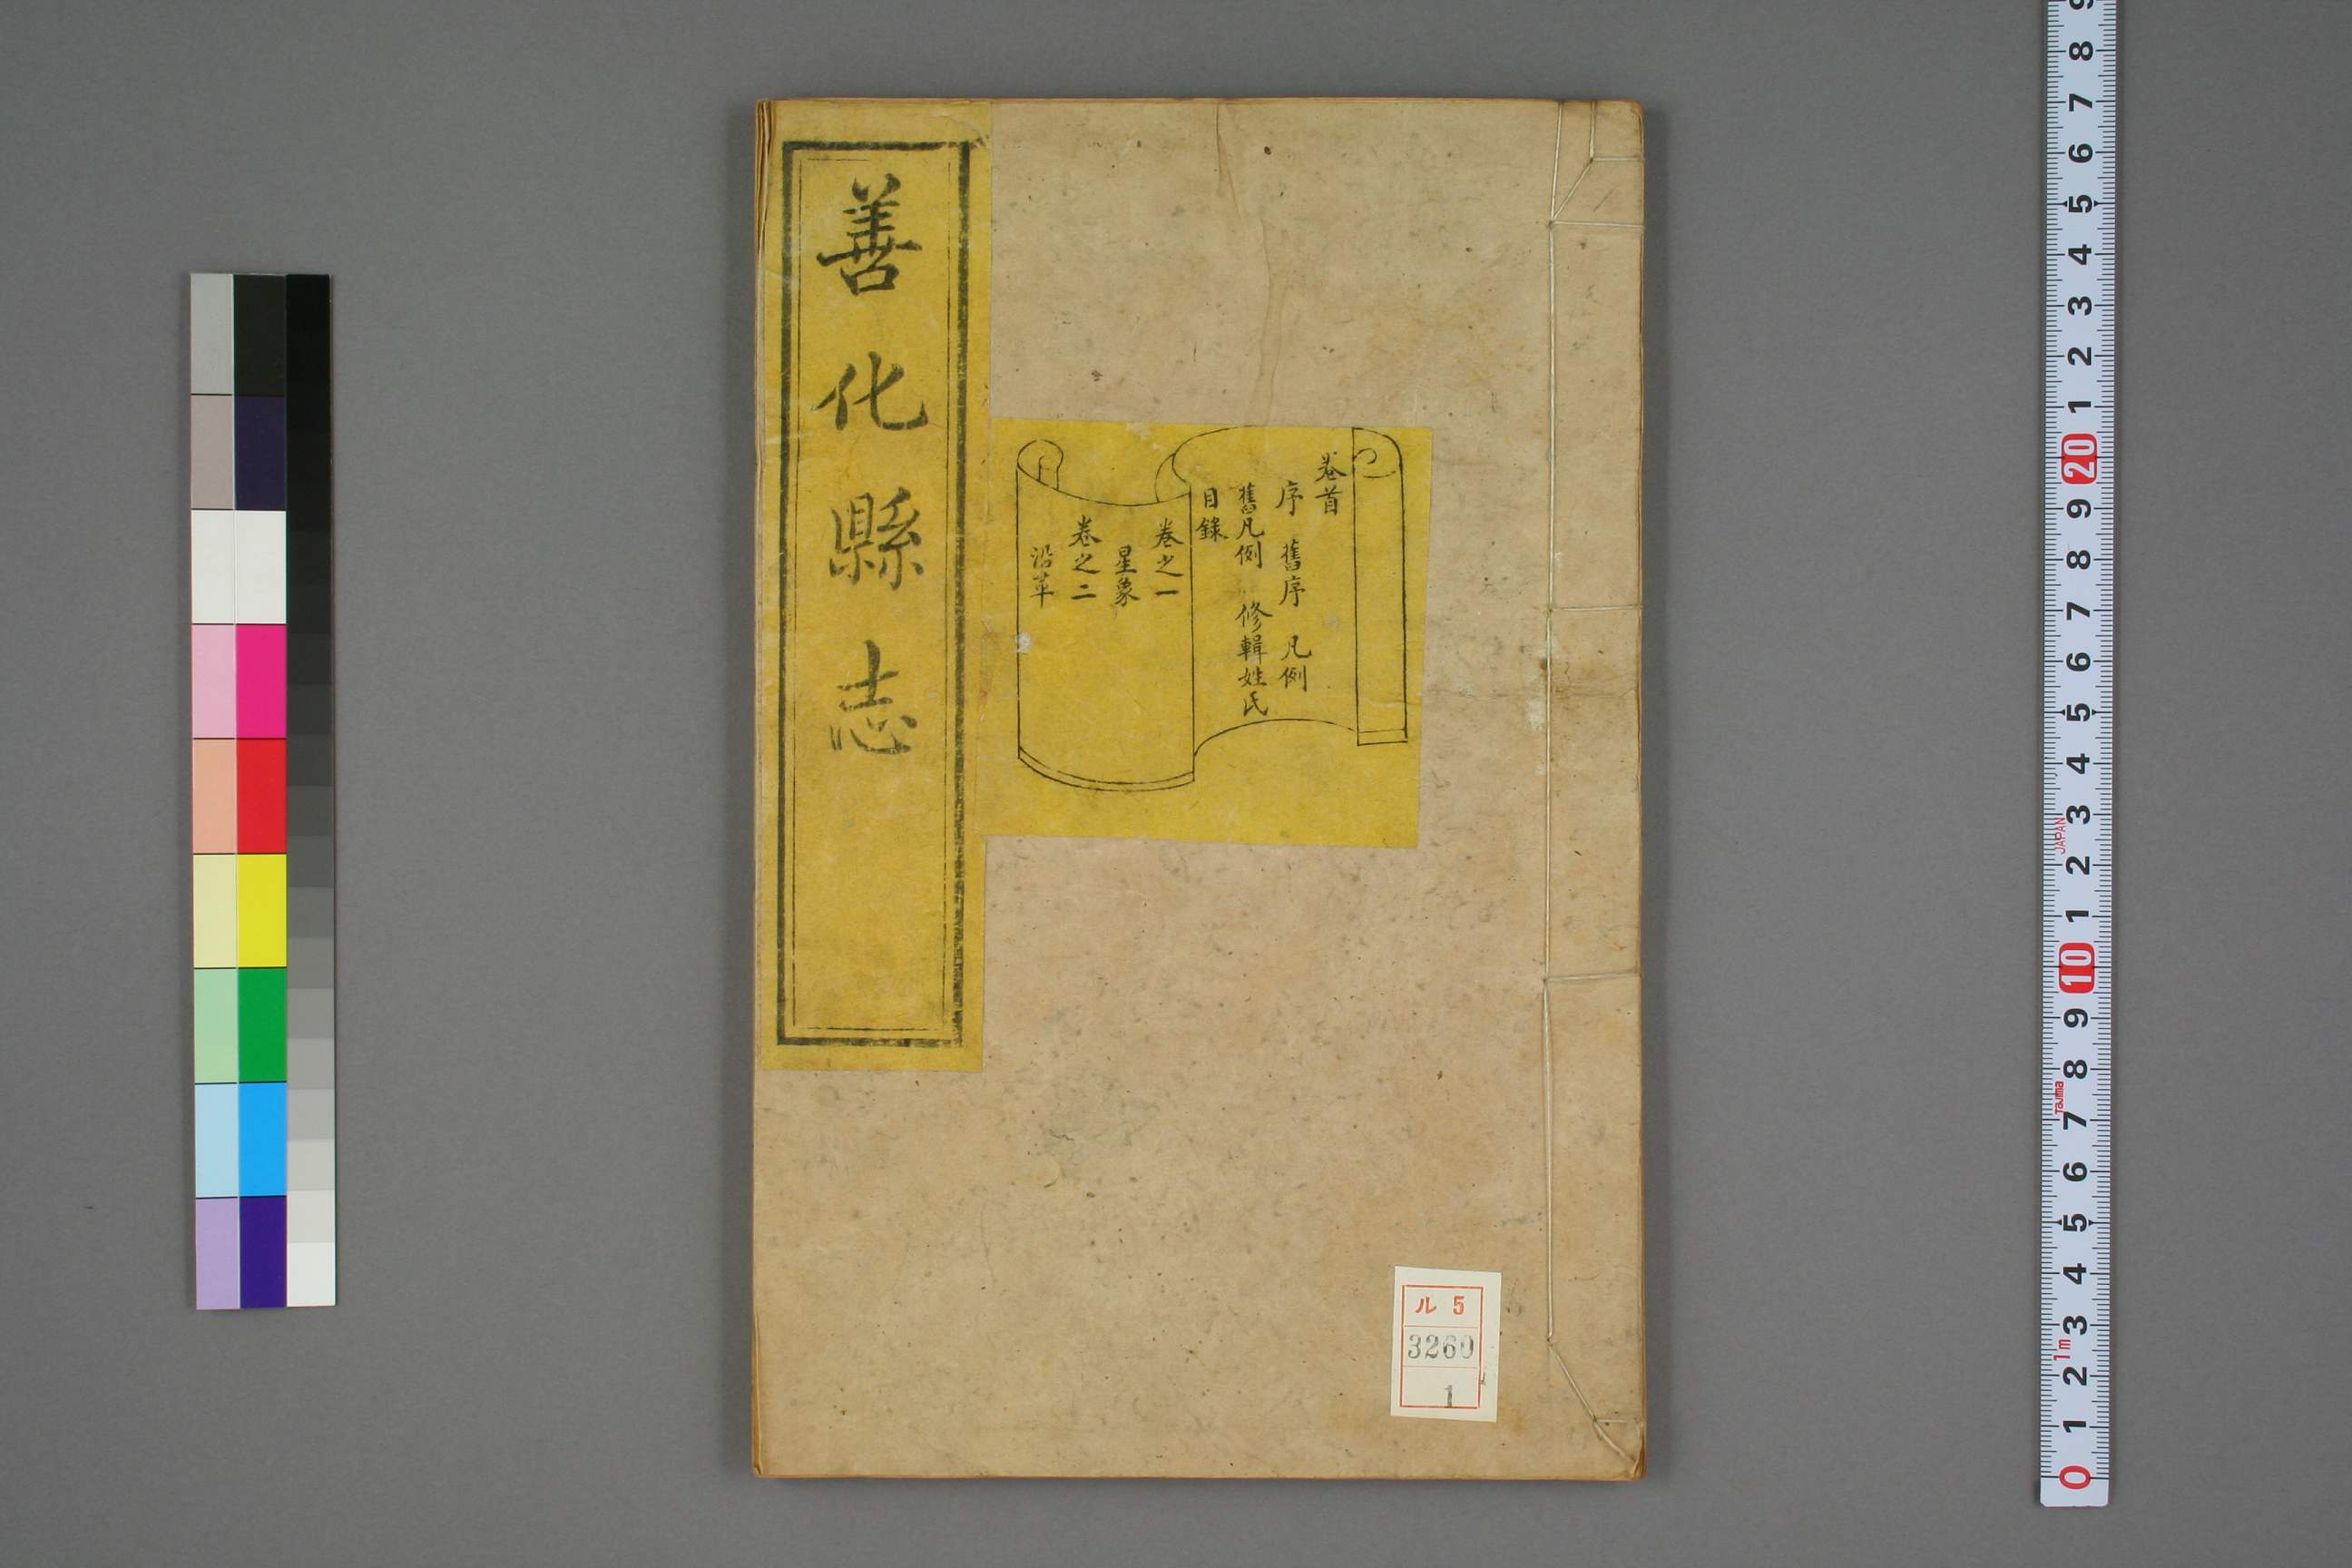 善化縣志
卷首
序 舊序 凡例
舊凡例 修輯姓氏
目錄
卷之一
星象
卷之二
沿革
ル 5
3260
1
9
8
7
6
5
4
3
2
1
20
9
8
7
6
5
4
3
JAPAN
2
1
10
9
8
Tajima
7
6
5
4
3
1m
2
1
0